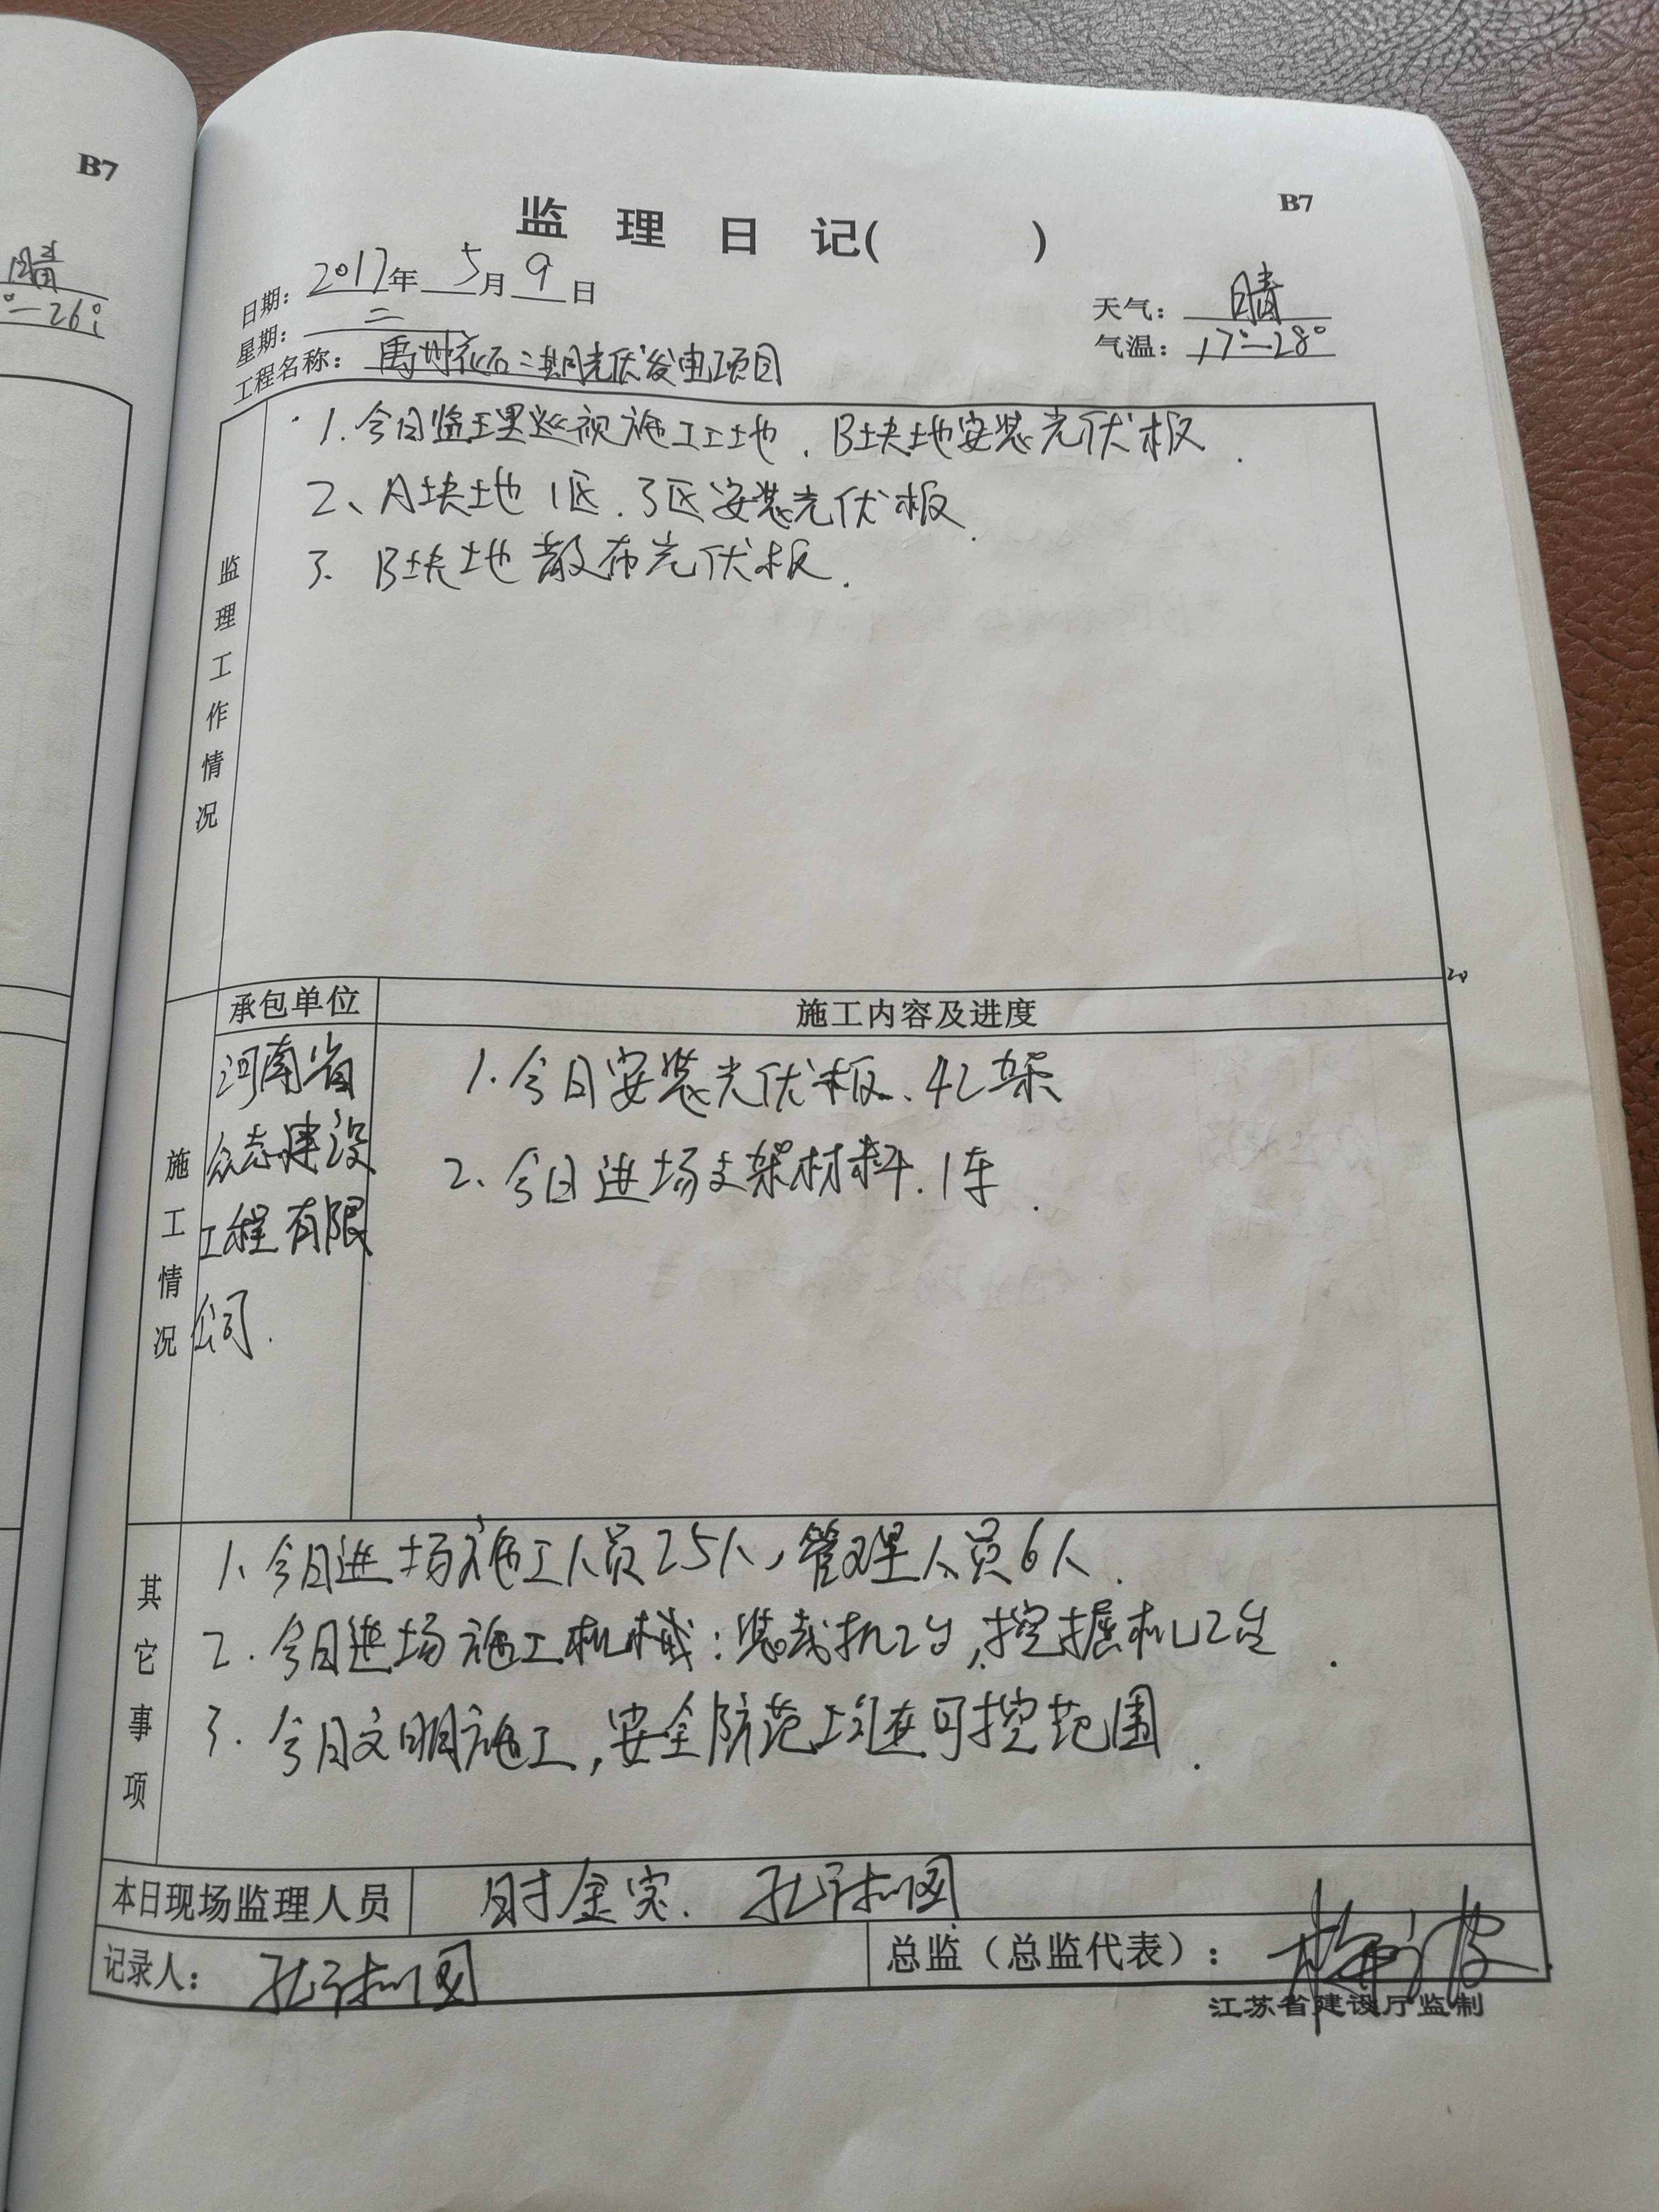 B7
晴
°—26°
B7
监 理 日 记( )
日期: 2017年 5月 9日
天气: 晴
星期: 二
气温: 17°—28°
工程名称: 禹州花石二期光伏发电项目
监理工作情况
1.今日监理巡视施工工地、B块地安装光伏板.
2、A块地1区.3区安装光伏板.
3. B块地散布光伏板.
承包单位
施工内容及进度
施工情况
河南省
众志建设
工程有限
公司.
1.今日安装光伏板、42架
2、今日进场支架材料.1车.
其它事项
1、今日进场施工人员25人,管理人员6人.
2.今日进场施工机械:装载机2台,挖掘机2台.
3.今日文明施工,安全防范均在可控范围.
本日现场监理人员
记录人:
总监(总监代表):
江苏省建设厅监制